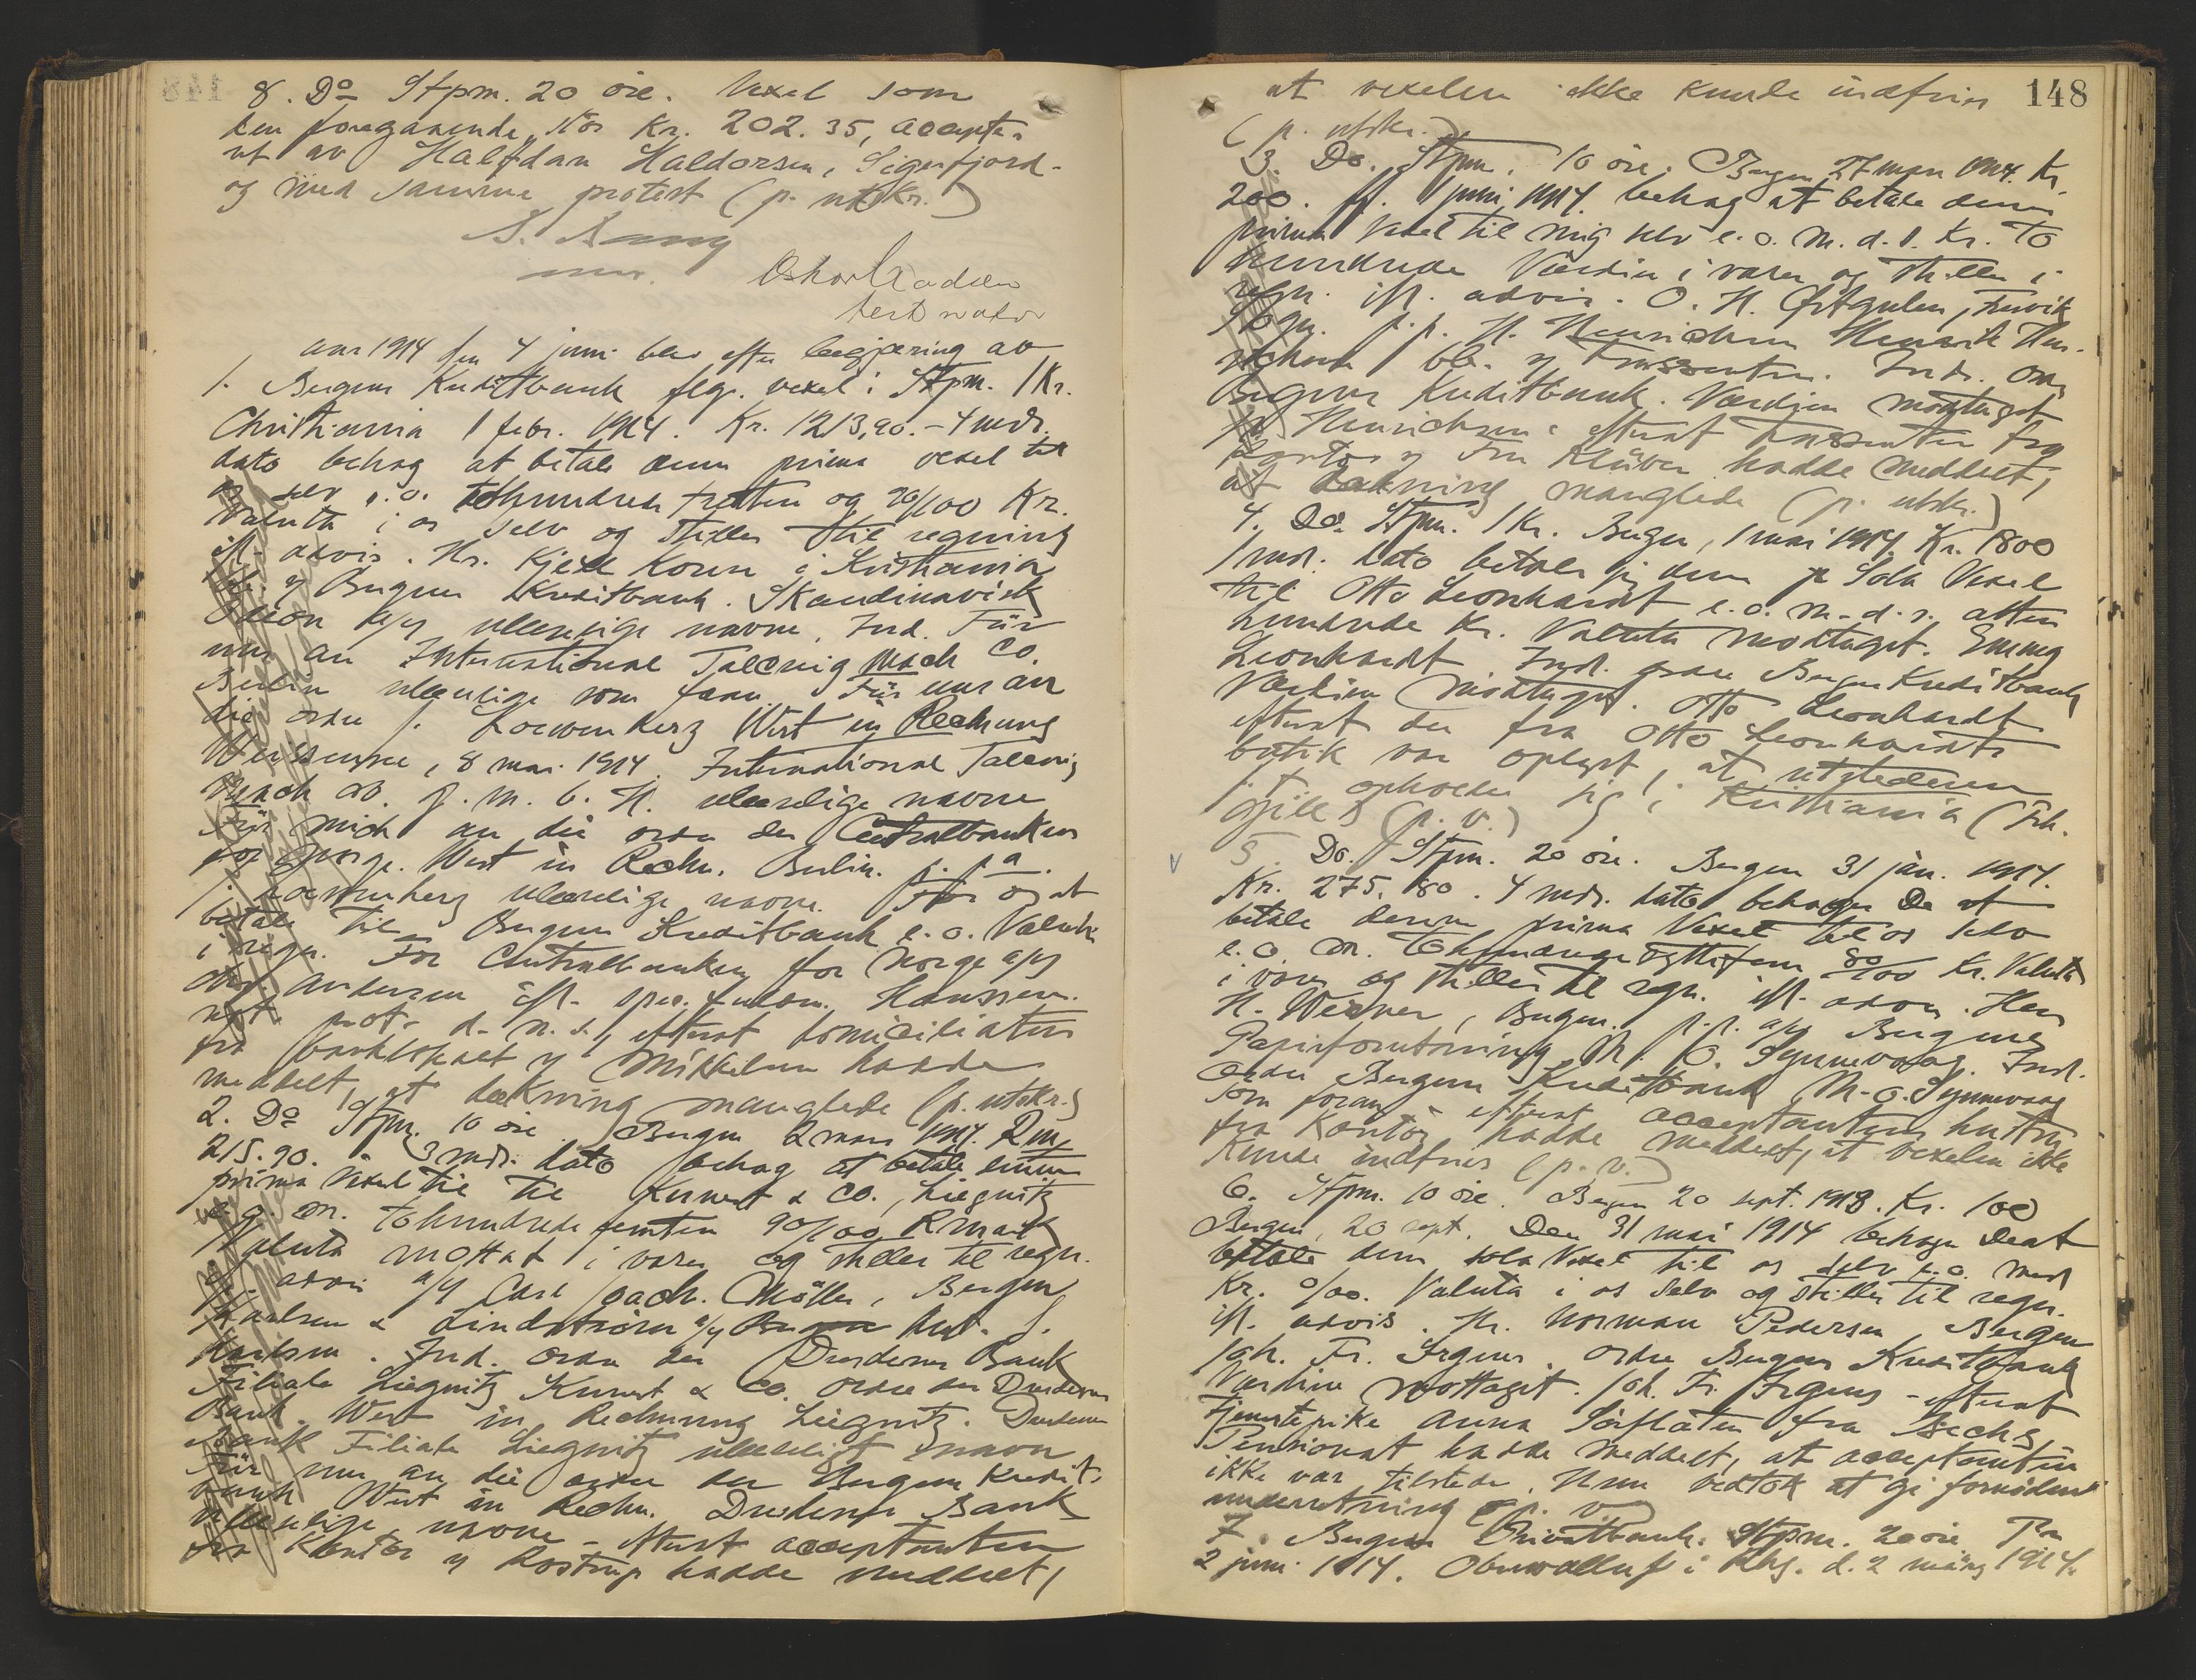 8. Do Stpm. 20 öre. Vexel som
den foregaaende, Kr. 202.35, accepte-
rt av Halfdan Haldorsen, Sigerfjord
og med samme protest (p. utskr.)
Oskar Madsen
testor
Aar 1914 den 4 juni blev efter begjæring av
1. Bergens Kreditbank flg. vexel: Stpm. 1 Kr.
Christiania 1 febr. 1914. Kr. 1213,90. - 4 mdr.
dato behag at betale denne prima vexel til
os selv e.o. tolvhundrede tretten og 90/100 Kr.
Valuta i os selv og stilles til regning
ifl. advis. Hr. Kjell Koren i Kristiania
Bergens Kreditbank. Skandinavisk
a/s ulæselige navne. Ind. Für
uns an International Talking Mach Co.
Berlin ulæselige som foran. Für uns an
die order J. Loewenherz Wert in Rechnung
Weissensee, 8 mai 1914. International Talking
Mach Co. G.m.b.H. ulæselige navne
Für mich an die order der Centralbanken
for Norge. Wert in Rechn. Berlin. p.pa.
J. Loewenherz ulæselige navne. For os at
betale til Bergens Kreditbank e.o. Valuta
i regn. For Centralbanken for Norge a/s
Andersen ifl. spec. fuldm. Hanssen.
not. prot. d.n.s., efterat domiciliaten
fra banklokalet v Mikkelsen hadde
meddelt, at dækning manglede (p. utskr.)
2. Do Stpm. 10 öre Bergen 2 mars 1914. Rm.
215.90. 3 mdr. dato behag at betale denne
prima Vexel til til Kunert & Co., Liegnitz
e.o. m. tohundrede femten 90/100 Rmark
Valuta mottat i varer og stilles til regn.
ifl. advis a/s Carl Joach. Möller, Bergen
Karlsen & Lindström a/s J.
Karlsen. Ind. order der Dresdener Bank
Filiale Liegnitz Kunert & Co. order der Dresdener
Bank. Wert in Rechnung Liegnitz. Dresdener
Bank Filiale Liegnitz ulæseligt navn
Für uns an die order der Bergens Kredit-
bank Wert in Rechn. Dresdener Bank
ulæselige navne - efterat acceptanten
fra Kontor v Rostrup hadde meddelt,
148
at vexelen ikke kunde indfries
(p. utskr.)
3. Do. Stpm. 10 öre. Bergen 27 mars 1914. Kr.
200. juni 1914 behag at betale denne
prima Vexel til mig selv e.o. m.d.s. Kr. to
hundrede Værdien i varer og stilles i
regn. ifl. advis. O. H. Førvik
Sogn. p.p. H. Henrichsen Henrik Hen-
richsen v trassenten. Ind. Ordre
Bergens Kreditbank. Værdien modtaget
H. Henrichsen efterat trassenten fra
Kontor v Frk Klüver hadde meddelt,
at dækning manglede (p. utskr.)
4. Do. Stpm. 1 Kr. Bergen, 1 mai 1914. Kr. 1800
1 md. dato betaler jeg denne Sola Vexel
til Otto Leonhardt e.o. m.d.s. atten
hundrede Kr. Valuta modtaget. Emma
Leonhardt Ind. ordre Bergens Kreditbank
Værdien modtaget. Otto Leonhardt
efterat der fra Otto Leonhardts
butik var oplyst, at utstederen
p.t. opholder sig i Kristiania (Frk.
(p. v.)
5. Do. Stpm. 20 öre. Bergen 31 jan. 1914.
Kr. 275.80. 4 mdr. dato behager De at
betale denne prima Vexel til os selv
e.o. m. tohundrede syttifem 80/100 Kr. Valuta
i varer og stilles til regn. ifl. advis. Herr
H. Werner, Bergen. p.p. a/s Bergens
Papirforretning M. O. Synnevaag. Ind.
Ordre Bergens Kreditbank M. O. Synnevaag
som foran - efterat acceptantens hustru
fra Kontor hadde meddelt, at vexelen ikke
kunde indfries (p. v.)
6. Stpm. 10 öre. Bergen 20 sept. 1913. Kr. 100
Bergen, 20 sept. Den 31 mai 1914 behager De at
betale denne sola Vexel til os selv e.o. med
Kr. 0/00. Valuta i os selv og stilles til regn.
ifl. advis. Hr. Norman Pedersen, Bergen
Joh. Fr. Irgens. Ordre Bergens Kreditbank
Værdien mottaget. Joh. Fr. Irgens - efterat
tjenestepike Anna Sörflaten fra Bechs
Pensionat hadde meddelt, at acceptanten
ikke var tilstede. Hun vedtok at gi fornöden
underretning (p. v.)
7. Bergens Privatbank. Stpm. 20 öre Pr.
2 juni 1914. i Rhg. d. 2 März 1914.